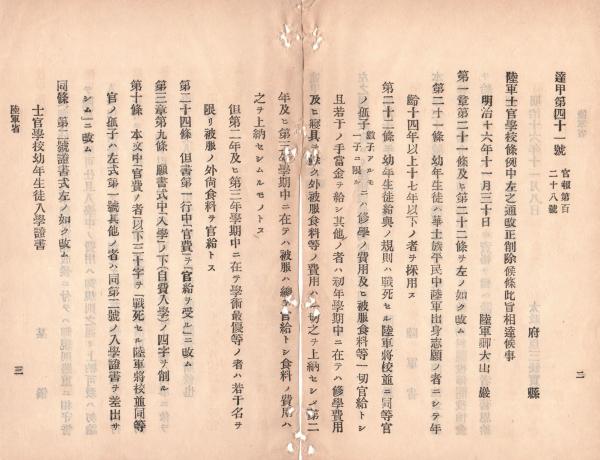 二
府縣
達甲第四十一號 官報第百二十八號
陸軍士官學校條例中左之通改正削除候條此旨相達候事
明治十六年十一月三十日 陸軍卿大山巖
第一章第二十一條及ヒ第二十二條ヲ左ノ如ク改ム
第二十一條 幼年生徒ハ華士族平民中陸軍出身志願ノ者ニシテ年
齡十四年以上十七年以下ノ者ヲ採用ス
第二十二條 幼年生徒給與ノ規則ハ戰死セル陸軍將校並ニ同等官
ノ孤子 數子アルモ一子ニ限ル ニハ修學ノ費用及ヒ被服食料等一切官給トシ
且若干ノ手當金ヲ給シ其他ノ者ハ初年學期中ニ在テハ修學費用
及ヒ寢具ヲ除ク外被服食料等ノ費用ハ一切之ヲ上納セシメ第二
年及ヒ第三年學期中ニ在テハ被服ハ總テ官給トシ食料ノ費用ハ
之ヲ上納セシムルモノトス
但第二年及ヒ第三年學期中ニ在テ學術最優等ノ者ハ若干名ヲ
限リ被服ノ外尙食料ヲ官給トス
第二十四條 但書第一行中「官費」ヲ「官給ヲ受ル」ニ改ム
第三章第九條 願書式中「入學」ノ下「自費入學」ノ四字ヲ削ル
第十條 本文中「官費ノ者」以下三十字ヲ「戰死セル陸軍將校並同等
官ノ孤子ハ左式第一號其他ノ者ハ同第二號ノ入學證書ヲ差出サ
シム」ニ改ム
同條 第二號證書式左ノ如ク改ム
士官學校幼年生徒入學證書
陸軍省
三